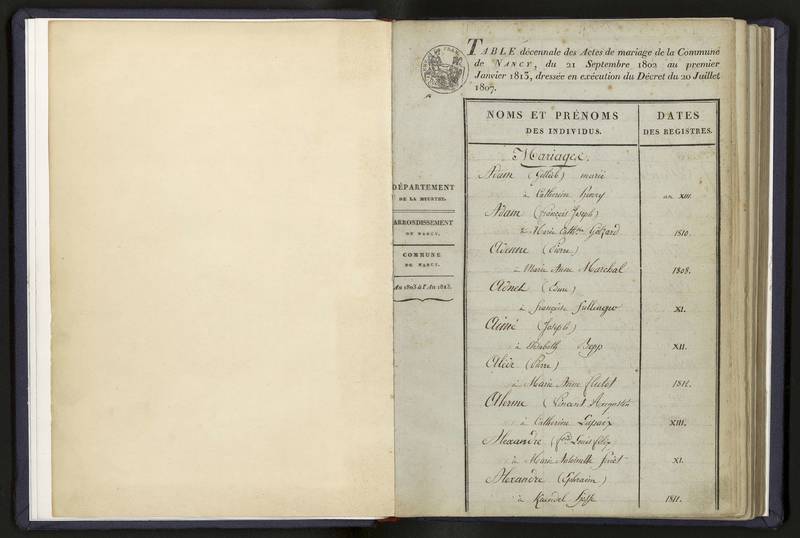 TABLE décennale des Actes de mariage de la Commune
de NANCY, du 21 Septembre 1802 au premier
Janvier 1813, dressée en exécution du Décret du 20 Juillet
1807.
DÉPARTEMENT
DE LA MEURTHE.
ARRONDISSEMENT
DE NANCY.
COMMUNE
DE NANCY.
An 1803 à l'An 1813.
NOMS ET PRÉNOMS
DES INDIVIDUS.
DATES
DES REGISTRES.
Mariages.
Adam marié
à Catherine Henry an XIII.
Adam (François Joseph)
à Marie Cathne 1810.
Adenne (Pierre)
à Marie Anne Marchal 1808.
Adnet (Edme)
à françoise XI.
Aimé (Joseph)
à Elisabeth Bepp XII.
(Pierre)
à Marie Anne 1812.
(Vincent Augustin
à Catherine Lapaix XIII.
Alexandre Louis félix
à Marie Antoinette XI.
Alexandre (Ephraim)
à Kaindel 1811.